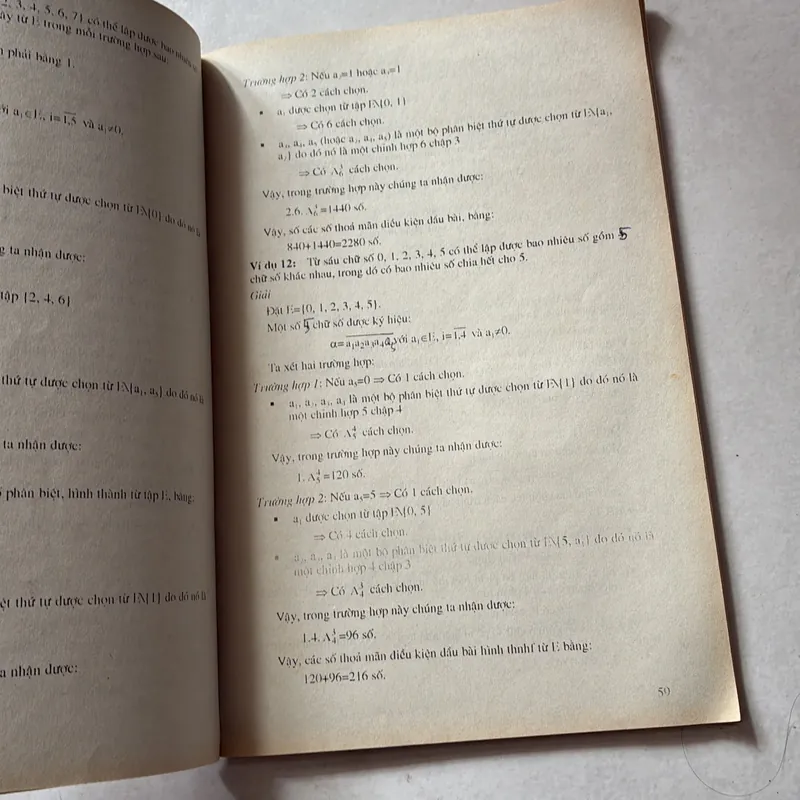 2, 3, 4, 5, 6, 7} có thể lập được bao nhiêu số
từ E trong mỗi trường hợp sau:
phải bằng 1.
với a₁∈E, i=1,5 và a₁≠0,
biệt thứ tự được chọn từ E\{0} do đó nó là
ta nhận được:
tập {2, 4, 6}
thứ tự được chọn từ E\{a₁, a₅} do đó nó là
ta nhận được:
phân biệt, hình thành từ tập E, bằng:
biệt thứ tự được chọn từ E\{1} do đó nó là
ta nhận được:
Trường hợp 2: Nếu a₂=1 hoặc a₃=1
⇒ Có 2 cách chọn.
▪ a₁ được chọn từ tập E\{0, 1}
⇒ Có 6 cách chọn.
▪ a₃, a₄, a₅ (hoặc a₂, a₄, a₅) là một bộ phân biệt thứ tự được chọn từ E\{a₁,
a₂} do đó nó là một chỉnh hợp 6 chập 3
⇒ Có A₆³ cách chọn.
Vậy, trong trường hợp này chúng ta nhận được:
2.6. A₆³=1440 số.
Vậy, số các số thoả mãn điều kiện đầu bài, bằng:
840+1440=2280 số.
Ví dụ 12: Từ sáu chữ số 0, 1, 2, 3, 4, 5 có thể lập được bao nhiêu số gồm 5
chữ số khác nhau, trong đó có bao nhiêu số chia hết cho 5.
Giải
Đặt E={0, 1, 2, 3, 4, 5}.
Một số 5 chữ số được ký hiệu:
α=a₁a₂a₃a₄a₅ với a₁∈E, i=1,4 và a₁≠0.
Ta xét hai trường hợp:
Trường hợp 1: Nếu a₅=0 ⇒ Có 1 cách chọn.
▪ a₁, a₂, a₃, a₄ là một bộ phân biệt thứ tự được chọn từ E\{1} do đó nó là
một chỉnh hợp 5 chập 4
⇒ Có A₅⁴ cách chọn.
Vậy, trong trường hợp này chúng ta nhận được:
1. A₅⁴=120 số.
Trường hợp 2: Nếu a₅=5 ⇒ Có 1 cách chọn.
▪ a₁ được chọn từ tập E\{0, 5}
⇒ Có 4 cách chọn.
▪ a₂, a₃, a₄ là một bộ phân biệt thứ tự được chọn từ E\{5, a₁} do đó nó là
một chỉnh hợp 4 chập 3
⇒ Có A₄³ cách chọn.
Vậy, trong trường hợp này chúng ta nhận được:
1.4. A₄³=96 số.
Vậy, các số thoả mãn điều kiện đầu bài hình thnhf từ E bằng:
120+96=216 số.
59